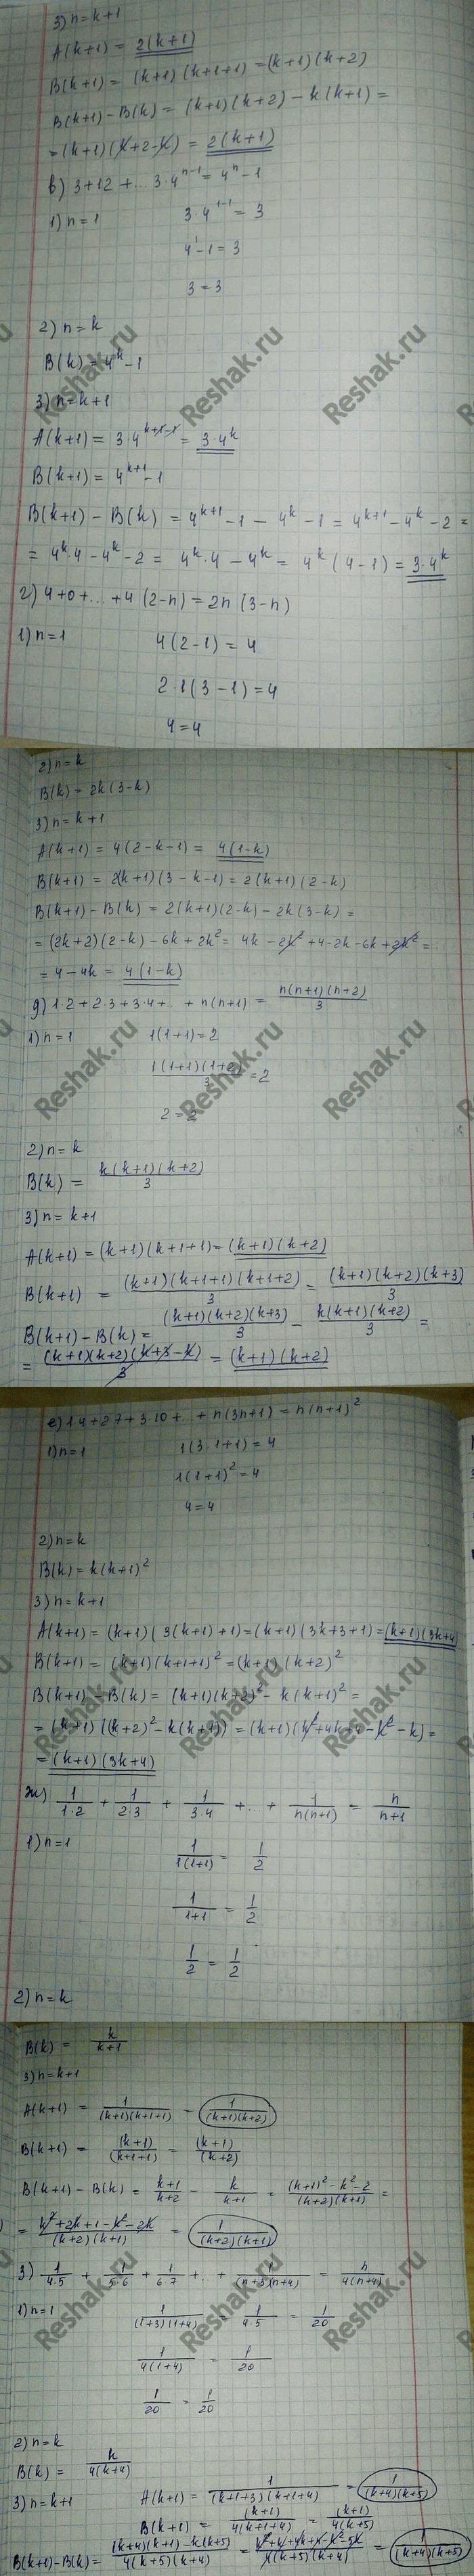 3) n=k+1
A(k+1) = 2(k+1)
B(k+1) = (k+1)(k+1+1) = (k+1)(k+2)
B(k+1) - B(k) = (k+1)(k+2) - k(k+1) =
= (k+1)(k+2-k) = 2(k+1)
в) 3+12+...3·4^{n-1} = 4^n - 1
1) n=1 3·4^{1-1} = 3
4^1 - 1 = 3
3 = 3
2) n=k
B(k) = 4^k - 1
3) n=k+1
A(k+1) = 3·4^{k+1-1} = 3·4^k
B(k+1) = 4^{k+1} - 1
B(k+1) - B(k) = 4^{k+1} - 1 - 4^k - 1 = 4^{k+1} - 4^k - 2 =
= 4^k·4 - 4^k - 2 = 4^k·4 - 4^k = 4^k(4-1) = 3·4^k
г) 4+0+...+4(2-n) = 2n(3-n)
1) n=1 4(2-1) = 4
2·1(3-1) = 4
4 = 4
2) n=k
B(k) = 2k(3-k)
3) n=k+1
A(k+1) = 4(2-k-1) = 4(1-k)
B(k+1) = 2(k+1)(3-k-1) = 2(k+1)(2-k)
B(k+1) - B(k) = 2(k+1)(2-k) - 2k(3-k) =
= (2k+2)(2-k) - 6k + 2k² = 4k - 2k² + 4 - 2k - 6k + 2k² =
= 4 - 4k = 4(1-k)
д) 1·2 + 2·3 + 3·4 + ... + n(n+1) = n(n+1)(n+2)/3
1) n=1 1(1+1) = 2
1(1+1)(1+2)/3 = 2
2 = 2
2) n=k
B(k) = k(k+1)(k+2)/3
3) n=k+1
A(k+1) = (k+1)(k+1+1) = (k+1)(k+2)
B(k+1) = (k+1)(k+1+1)(k+1+2)/3 = (k+1)(k+2)(k+3)/3
B(k+1) - B(k) = (k+1)(k+2)(k+3)/3 - k(k+1)(k+2)/3 =
= (k+1)(k+2)(k+3-k)/3 = (k+1)(k+2)
е) 1·4 + 2·7 + 3·10 + ... + n(3n+1) = n(n+1)²
1) n=1 1(3·1+1) = 4
1(1+1)² = 4
4 = 4
2) n=k
B(k) = k(k+1)²
3) n=k+1
A(k+1) = (k+1)(3(k+1)+1) = (k+1)(3k+3+1) = (k+1)(3k+4)
B(k+1) = (k+1)(k+1+1)² = (k+1)(k+2)²
B(k+1) - B(k) = (k+1)(k+2)² - k(k+1)² =
= (k+1)((k+2)² - k(k+1)) = (k+1)(k²+4k+4-k²-k) =
= (k+1)(3k+4)
ж) 1/1·2 + 1/2·3 + 1/3·4 + ... + 1/n(n+1) = n/n+1
1) n=1 1/1(1+1) = 1/2
1/1+1 = 1/2
1/2 = 1/2
2) n=k
B(k) = k/k+1
3) n=k+1
A(k+1) = 1/(k+1)(k+1+1) = 1/(k+1)(k+2)
B(k+1) = (k+1)/(k+1+1) = (k+1)/(k+2)
B(k+1) - B(k) = k+1/k+2 - k/k+1 = (k+1)²-k²-2/(k+2)(k+1) =
= k²+2k+1-k²-2k/(k+2)(k+1) = 1/(k+2)(k+1)
з) 1/4·5 + 1/5·6 + 1/6·7 + ... + 1/(n+3)(n+4) = n/4(n+4)
1) n=1 1/(1+3)(1+4) = 1/4·5 = 1/20
1/4(1+4) = 1/20
1/20 = 1/20
2) n=k
B(k) = k/4(k+4)
3) n=k+1 A(k+1) = 1/(k+1+3)(k+1+4) = 1/(k+4)(k+5)
B(k+1) = (k+1)/4(k+1+4) = (k+1)/4(k+5)
B(k+1)-B(k) = (k+4)(k+1)-k(k+5)/4(k+5)(k+4) = k²+k+4k+4-k²-5k/4(k+5)(k+4) = 1/(k+4)(k+5)
Reshak.ru
Reshak.ru
Reshak.ru
Reshak.ru
Reshak.ru
Reshak.ru
Reshak.ru
Reshak.ru
Reshak.ru
Reshak.ru
Reshak.ru
Reshak.ru